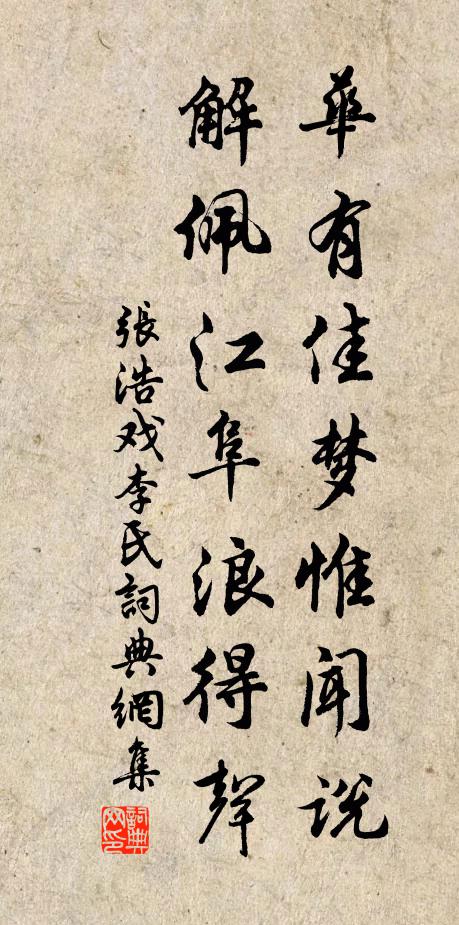 華有佳梦惟闻说
解佩江阜浪得聲
張浩戏李氏詞典網集
詞典网印